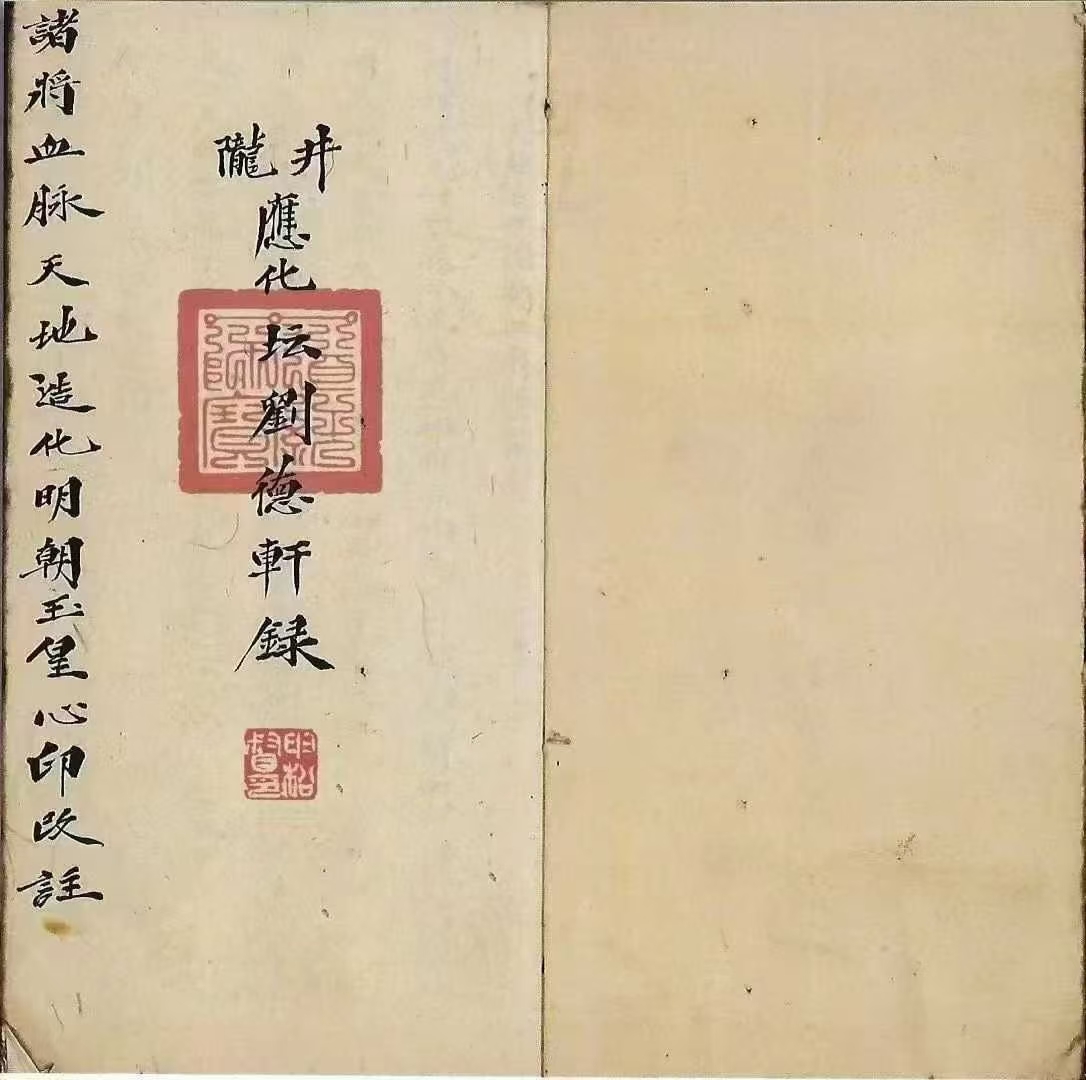 井隴
應化坛劉德軒録
諸将血脉天地造化明朝玉皇心印改註